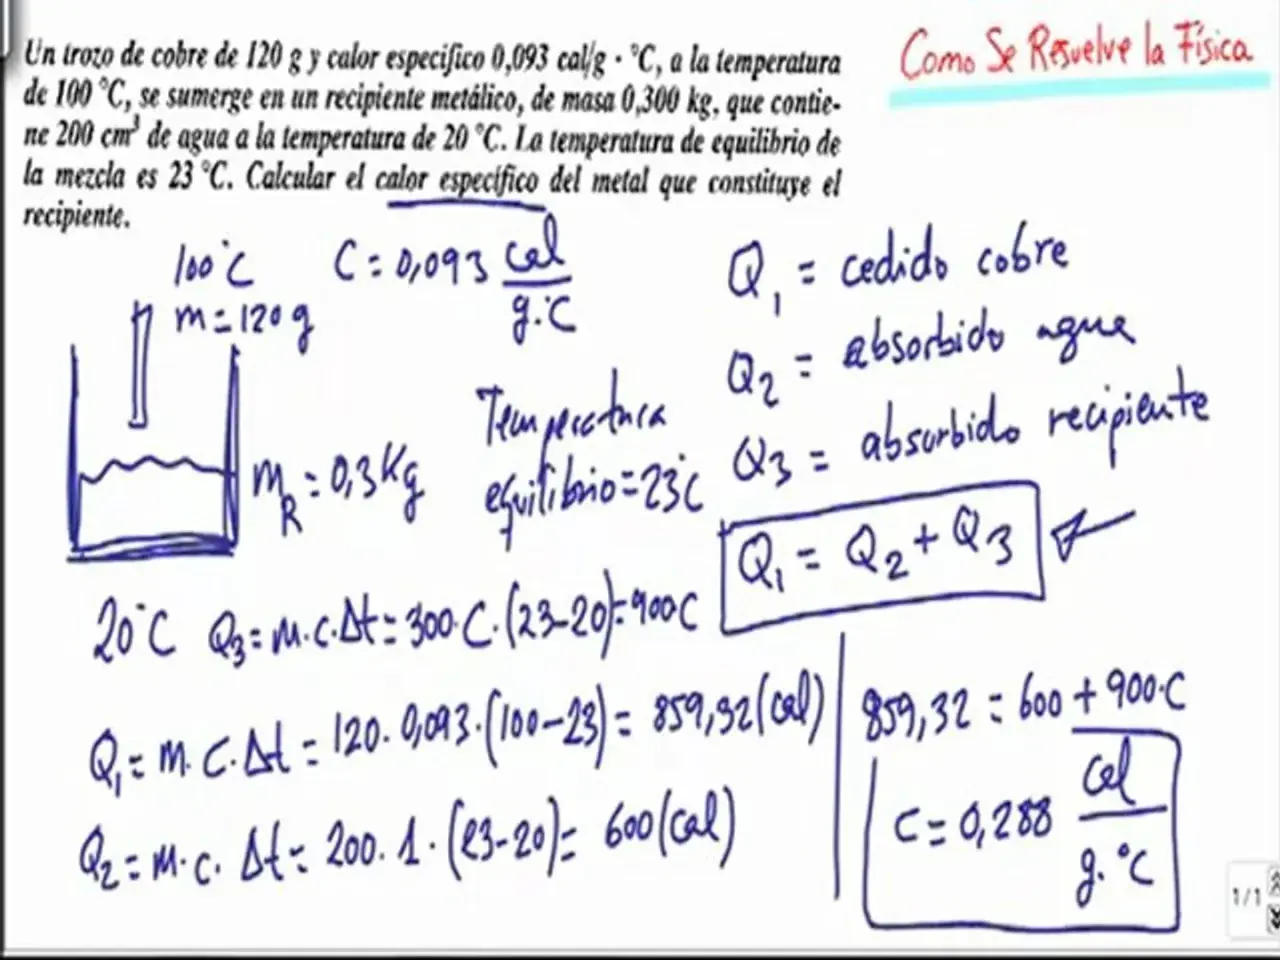 Un trozo de cobre de 120 g y calor específico 0,093 cal/g · °C, a la temperatura
de 100 °C, se sumerge en un recipiente metálico, de masa 0,300 kg, que contie-
ne 200 cm³ de agua a la temperatura de 20 °C. La temperatura de equilibrio de
la mezcla es 23 °C. Calcular el calor específico del metal que constituye el
recipiente.
Como Se Resuelve la Física
100°C
m = 120 g
C = 0,093 cal/g.°C
m_R = 0,3 Kg
Temperatura
equilibrio = 23°C
20°C
Q₁ = cedido cobre
Q₂ = absorbido agua
Q₃ = absorbido recipiente
Q₁ = Q₂ + Q₃
Q₃ = m.c.Δt = 300.C.(23-20) = 900C
Q₁ = m.c.Δt = 120.0,093.(100-23) = 859,32 (cal)
Q₂ = m.c.Δt = 200.1.(23-20) = 600 (cal)
859,32 = 600 + 900.C
C = 0,288 cal/g.°C
1/1